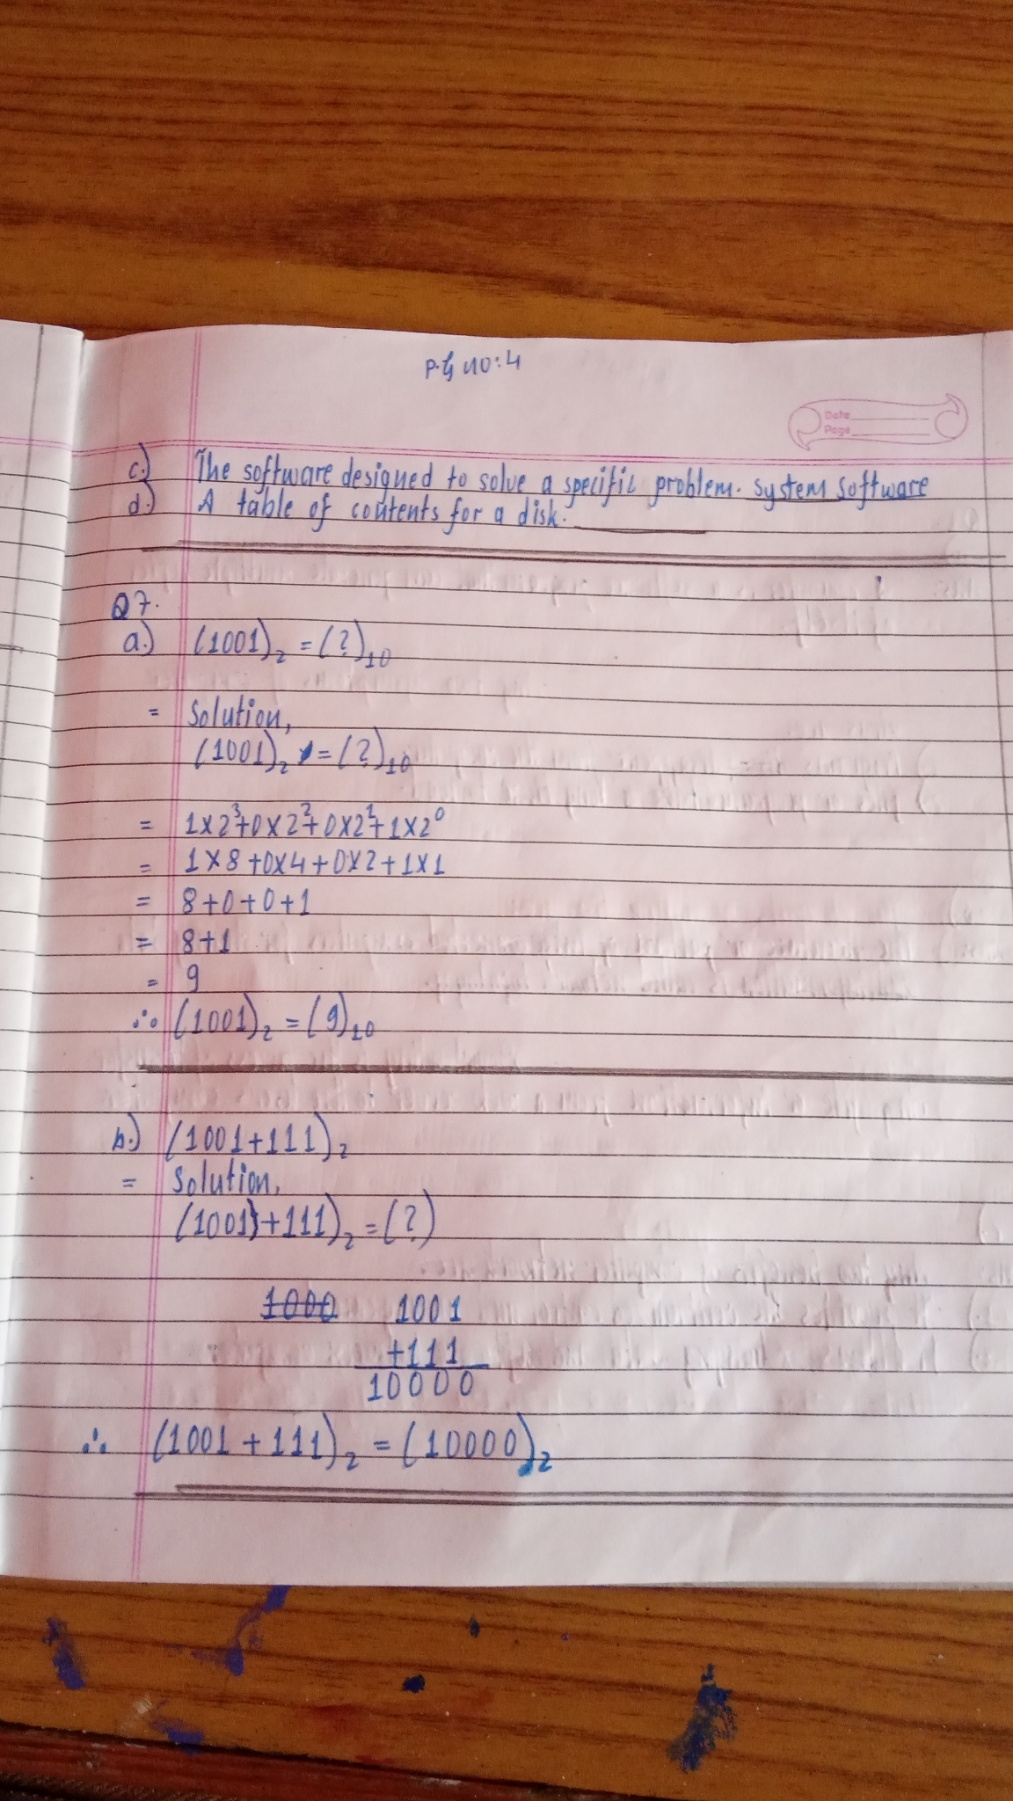 P.G no:4
Date
Page
c.) The software designed to solve a specific problem. system software
d.) A table of contents for a disk.
Q7.
a.) (1001)₂ = (?)₁₀
= Solution,
(1001)₂ = (?)₁₀
= 1×2³+0×2²+0×2¹+1×2⁰
= 1×8+0×4+0×2+1×1
= 8+0+0+1
= 8+1
= 9
∴ (1001)₂ = (9)₁₀
b.) (1001+111)₂
= Solution,
(1001+111)₂ = (?)
1000 1001
+111
10000
∴ (1001+111)₂ = (10000)₂